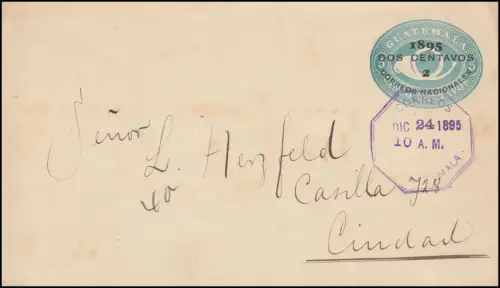 GUATEMALA
1895
DOS CENTAVOS
2
CORREOS NACIONALES
CORREOS
DIC 24 1895
10 A. M.
Señor
L. Herzfeld
40
Casilla 728
Ciudad